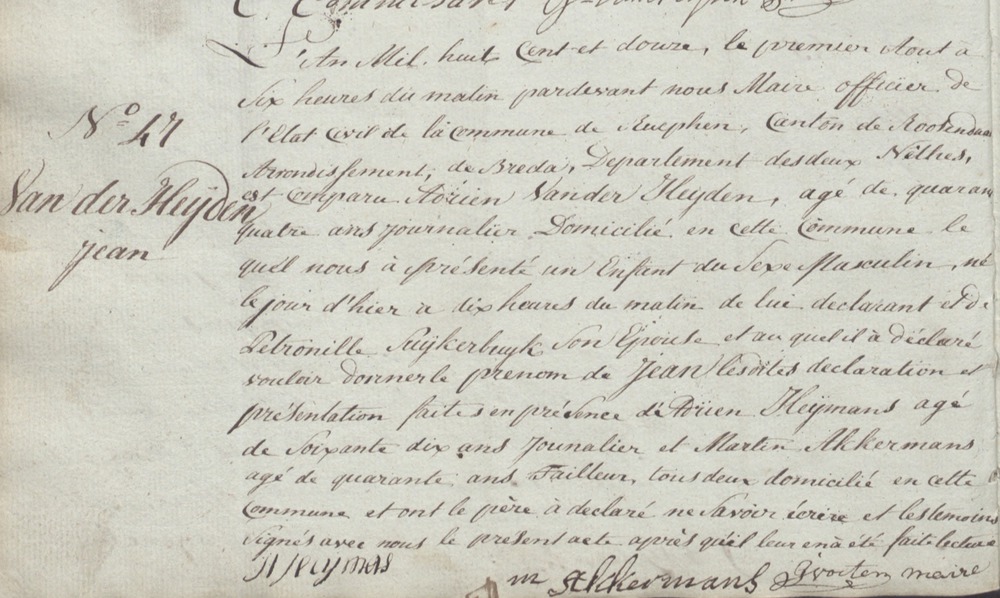 N° 47
Van der Heÿden
jean
L'An Mil huit Cent et douze, le premier Aout à
Six heures du matin pardevant nous Maire officier de
l'Etat Civil de la Commune de Ruephen, Canton de Rosendaa
Arrondissement, de Breda, Departement des deux Nèthes,
est Comparu Adrien Vander Heyden, agé de quaran
quatre ans journalier Domicilié en cette Commune le
quel nous à présenté un Enfant du Sexe Masculin, né
le jour d'hier a dix heures du matin de lui declarant et De
Petronille Suijkerbuyk Son Epouse et au quel il à déclaré
vouloir donner le prenom de Jean lesdites declaration et
présentation faites en présence d'Adrien Heÿmans agé
de Soixante dix ans Jounalier et Martin Akkermans
agé de quarante ans Tailleur, tous deux domicilié en cette
Commune et ont le père à declaré ne Savoir écrire et les temoins
Signés avec nous le present acte après qu'il leur en à été fait lecture
A Heijmans
m Akkermans maire